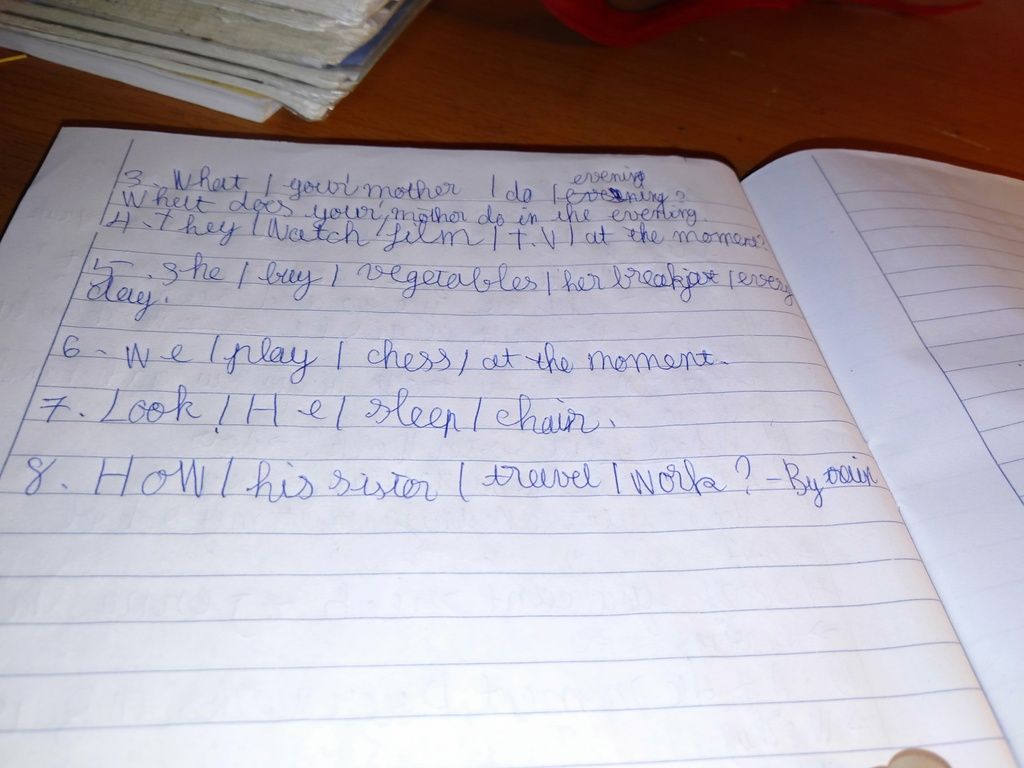 3. What / your mother / do / evening
evening?
What does your mother do in the evening.
4. They / Watch / film / T.V / at the moment?
5. She / buy / vegetables / her breakfast / every
day.
6. We / play / chess / at the moment.
7. Look! / He / sleep / chair.
8. How / his sister / travel / work? - By train